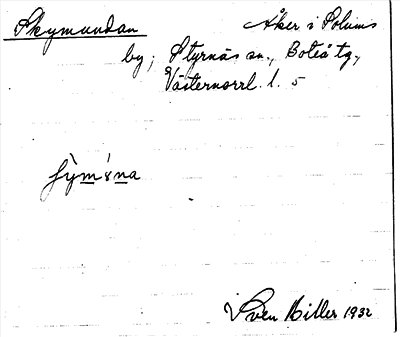 Skymundan Åker i Solums
by, Styrnäs sn., Boteå tg,
Västernorrl. l. 5
Sven Hiller 1932